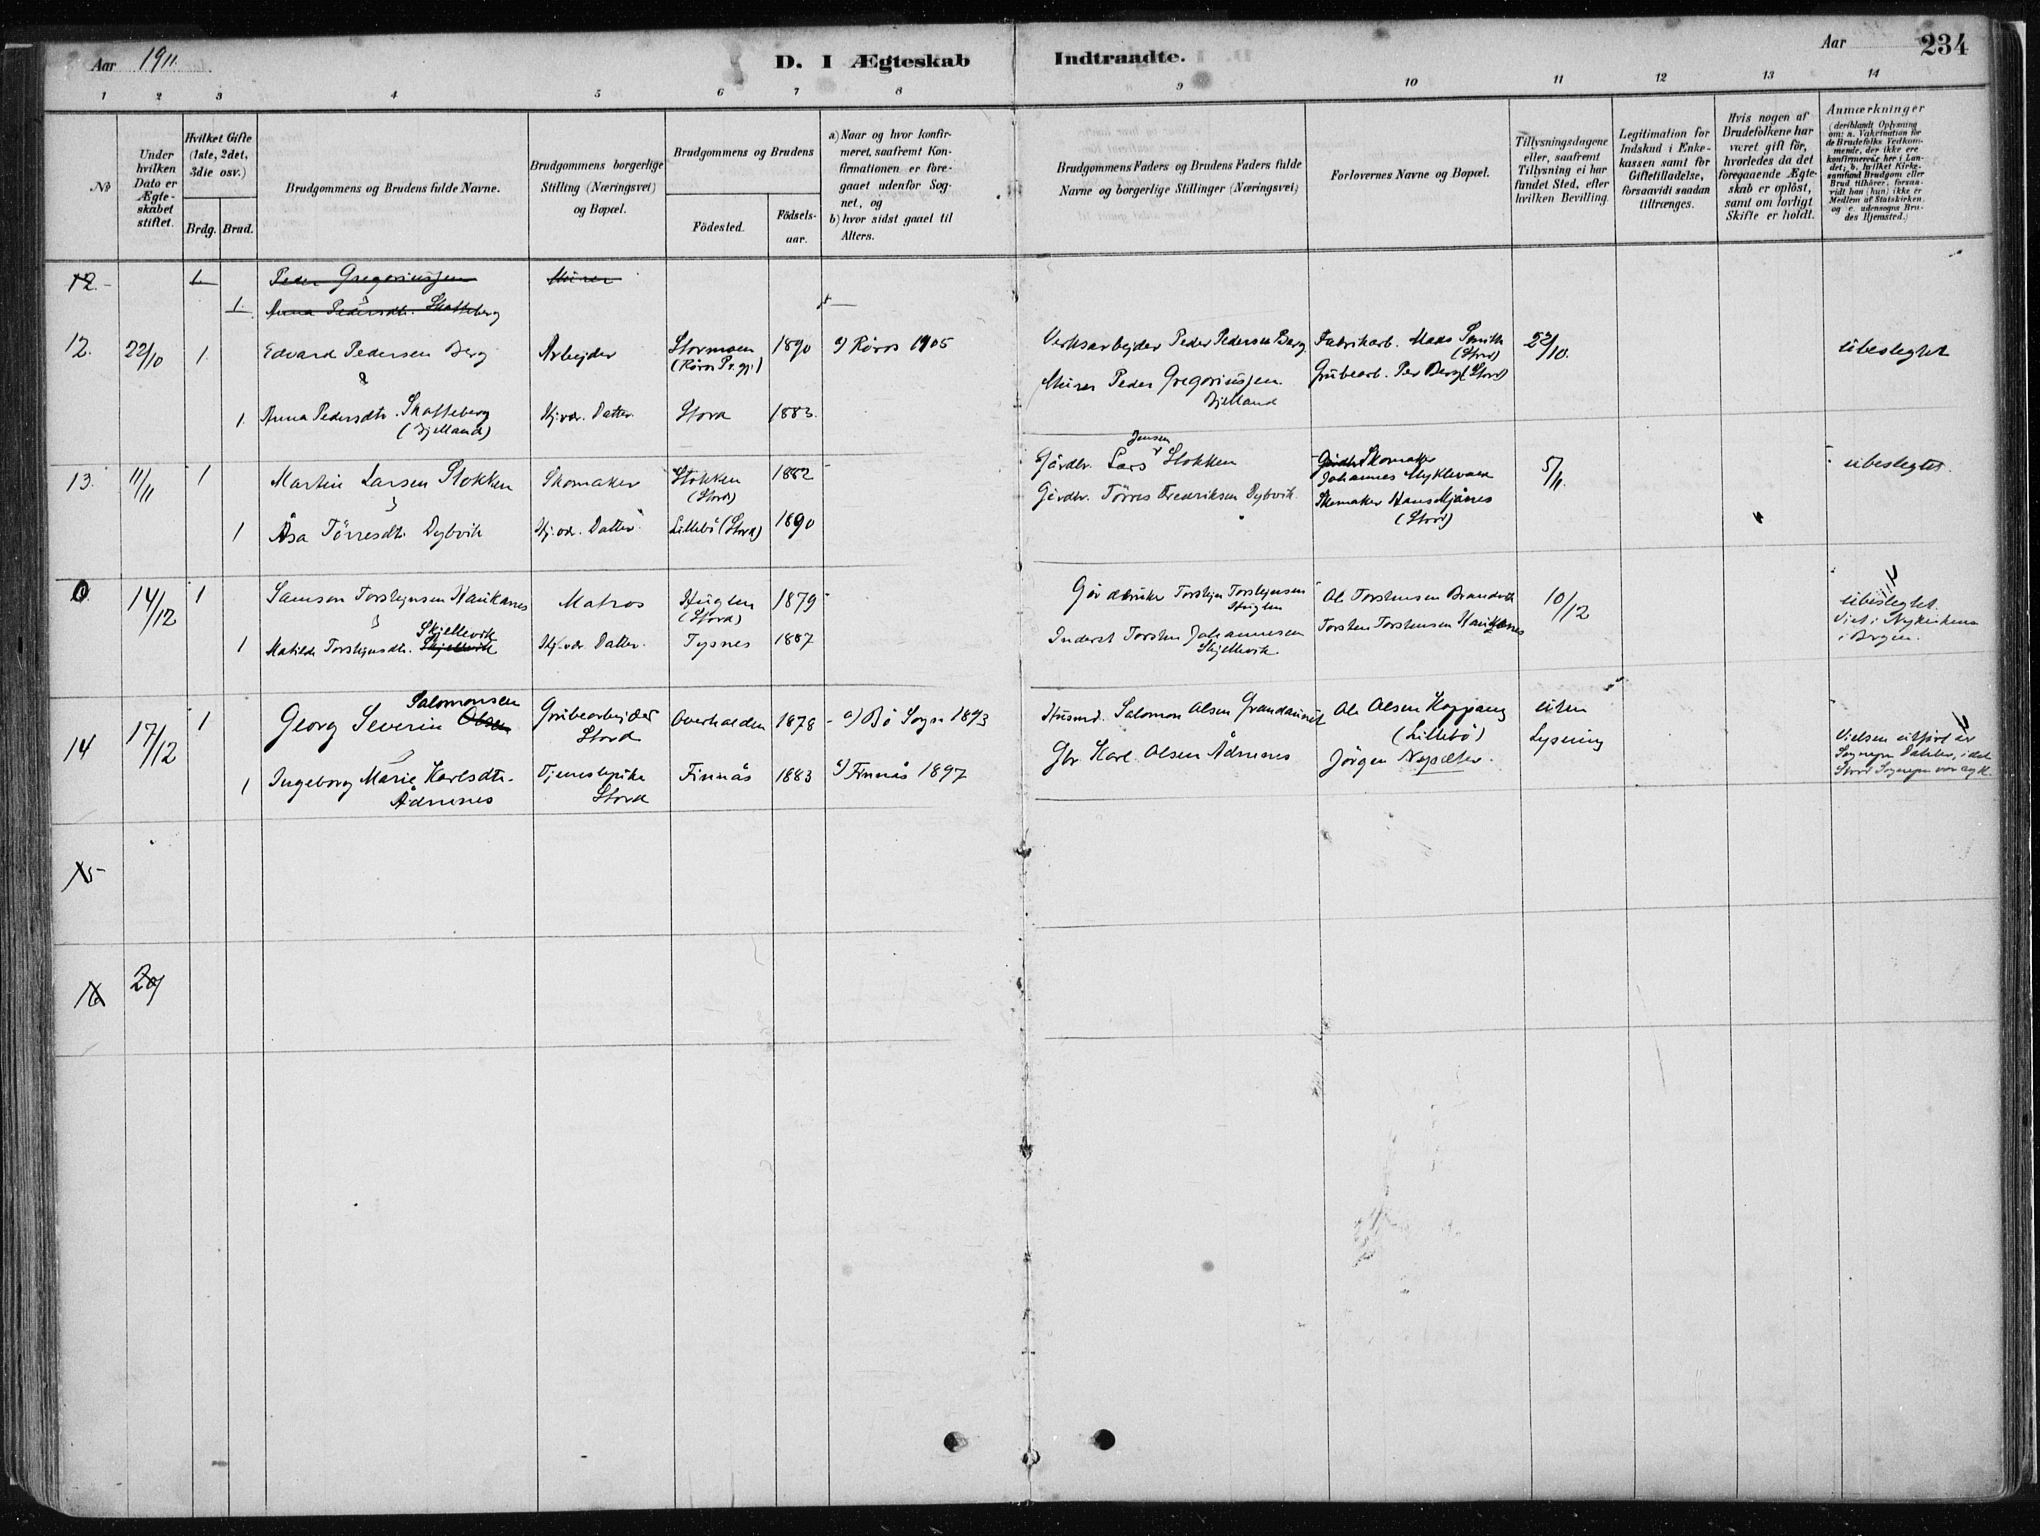 Aar 1911.
D. I Ægteskab Indtraadte.
Aar
234
1 2 3 4 5 6 7 8 9 10 11 12 13 14
No
Under hvilken Dato er Ægteskabet stiftet.
Hvilket Gifte (1ste, 2det, 3die osv.)
Brdg. Brud.
Brudgommens og Brudens fulde Navne.
Brudgommens borgerlige Stilling (Næringsvei) og Bopæl.
Brudgommens og Brudens
Födested.
Födselsaar.
a) Naar og hvor konfirmeret, saafremt Konfirmationen er foregaaet udenfor Sognet, og
b) hvor sidst gaaet til Alters.
Brudgommens Faders og Brudens Faders fulde Navne og borgerlige Stillinger (Næringsvei)
Forlovernes Navne og Bopæl.
Tillysningsdagene eller, saafremt Tillysning ei har fundet Sted, efter hvilken Bevilling.
Legitimation for Indskud i Enkekassen samt for Giftetilladelse, forsaavidt saadan tiltrænges.
Hvis nogen af Brudefolkene har været gift för, hvorledes da det foregaaende Ægteskab er oplöst, samt om lovligt Skifte er holdt.
Anmærkninger
(deriblandt Oplysning om: a. Vakcination for de Brudefolks Vedkommende, der ikke ere konfirmerede her i Landet; b. hvilket Kirkesamfund Brudgom eller Brud tilhörer, forsaavidt han (hun) ikke er Medlem af Statskirken, og c. udensogns Brudes Hjemsted.)
12. 1 Peder Gregoriussen Murer
1. Anna Pedersdtr. Skatteberg
12. 22/10 1. Edvard Pedersen Berg Arbejder Stormoen (Röros Pr.gj.) 1890 a) Röros 1905 Verksarbejder Peder Pedersen Berg Fabrikarb. Mads Smith (Stord) 22/10. ubeslegtet
&
Murer Peder Gregoriussen Bjelland Grubearb. Per Berg (Stord)
1. Anna Pedersdtr. Skatteberg (Bjelland) Hj.vær. Datter Stord 1883.
13. 11/11 1 Martin Larsen Stokken Skomaker Stokken (Stord) 1882 Gårdbr. Lars Jensen Stokken Gårdbr Skomaker Johannes Myklevaa 5/11. ubeslegtet.
Gårdbr. Törres Frederiksen Dybvik Skomaker Hans Mjånes (Stord)
1 Åsa Törresdtr. Dybvik Hj.vær. Datter Lillebö (Stord) 1890
0. 14/12 1 Samson Torstejnsen Haukanes Matros Huglen (Stord) 1879 Gårdbruker Torstejn Torstejnsen Huglen Ole Torstensen Brandvik 10/12 ubeslegtet.
Viet i Nykirken i Bergen.
1 Matilde Torstejnsdtr. Skjellevik Skjellevik Hj.vær. Datter. Tysnes 1887 Inderst Torsten Johannesen Skjellevik Torsten Torstensen Haukanes
14 17/12 1 Georg Severin Salomonsen Olsen Grubearbejder Stord Overhalden 1878 a) Bö Sogn 1893 Husmd. Salomon Olsen Grandaunet Ole Olsen Koppang (Lillebö) uten Lysning
Vielsen utfört av Sogneprest, i det Stord Sognepr var syk.
1 Ingeborg Marie Karlsdtr. Ådnesnes Tjenestepike Stord Finnås 1883 a) Finnås 1897 Gbr Karl Olsen Ådnesnes Jörgen Nysæter.
15
16 20/